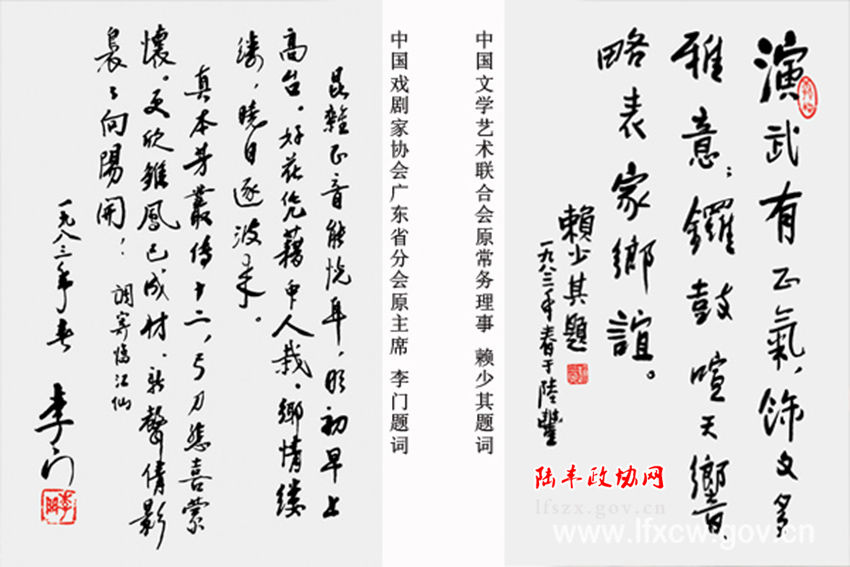 演武有正氣，飾文多
雅意；鑼鼓喧天響，
略表家鄉誼。
賴少其題
一九八三年春于陸豐
中国文学艺术联合会原常务理事 赖少其题词
中国戏剧家协会广东省分会原主席 李门题词
昆雜正音能悦耳，明初早上
高台。好花凭藉市人栽。鄉情缕
缕，曉日逐波来。
真本芳叢傳十二，弓刀愁喜蒙
懷。更欣雏鳳已成材。新聲倩影
裊裊向陽開！
調寄临江仙
一九八三年春
李门
陆丰政协网
lfszx.gov.cn
www.lfxcw.gov.cn